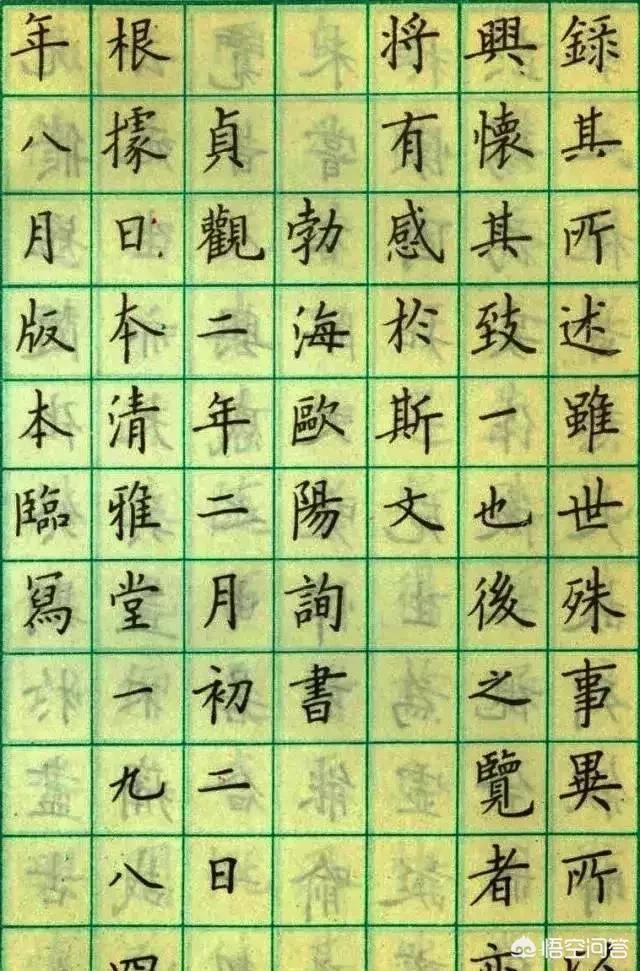 錄其所述雖世殊事異所以
興懷其致一也後之覽者亦
将有感扵斯文
勃海歐陽詢書
貞觀二年二月初二日
根據日本清雅堂一九八四
年八月版本臨冩
悟空问答